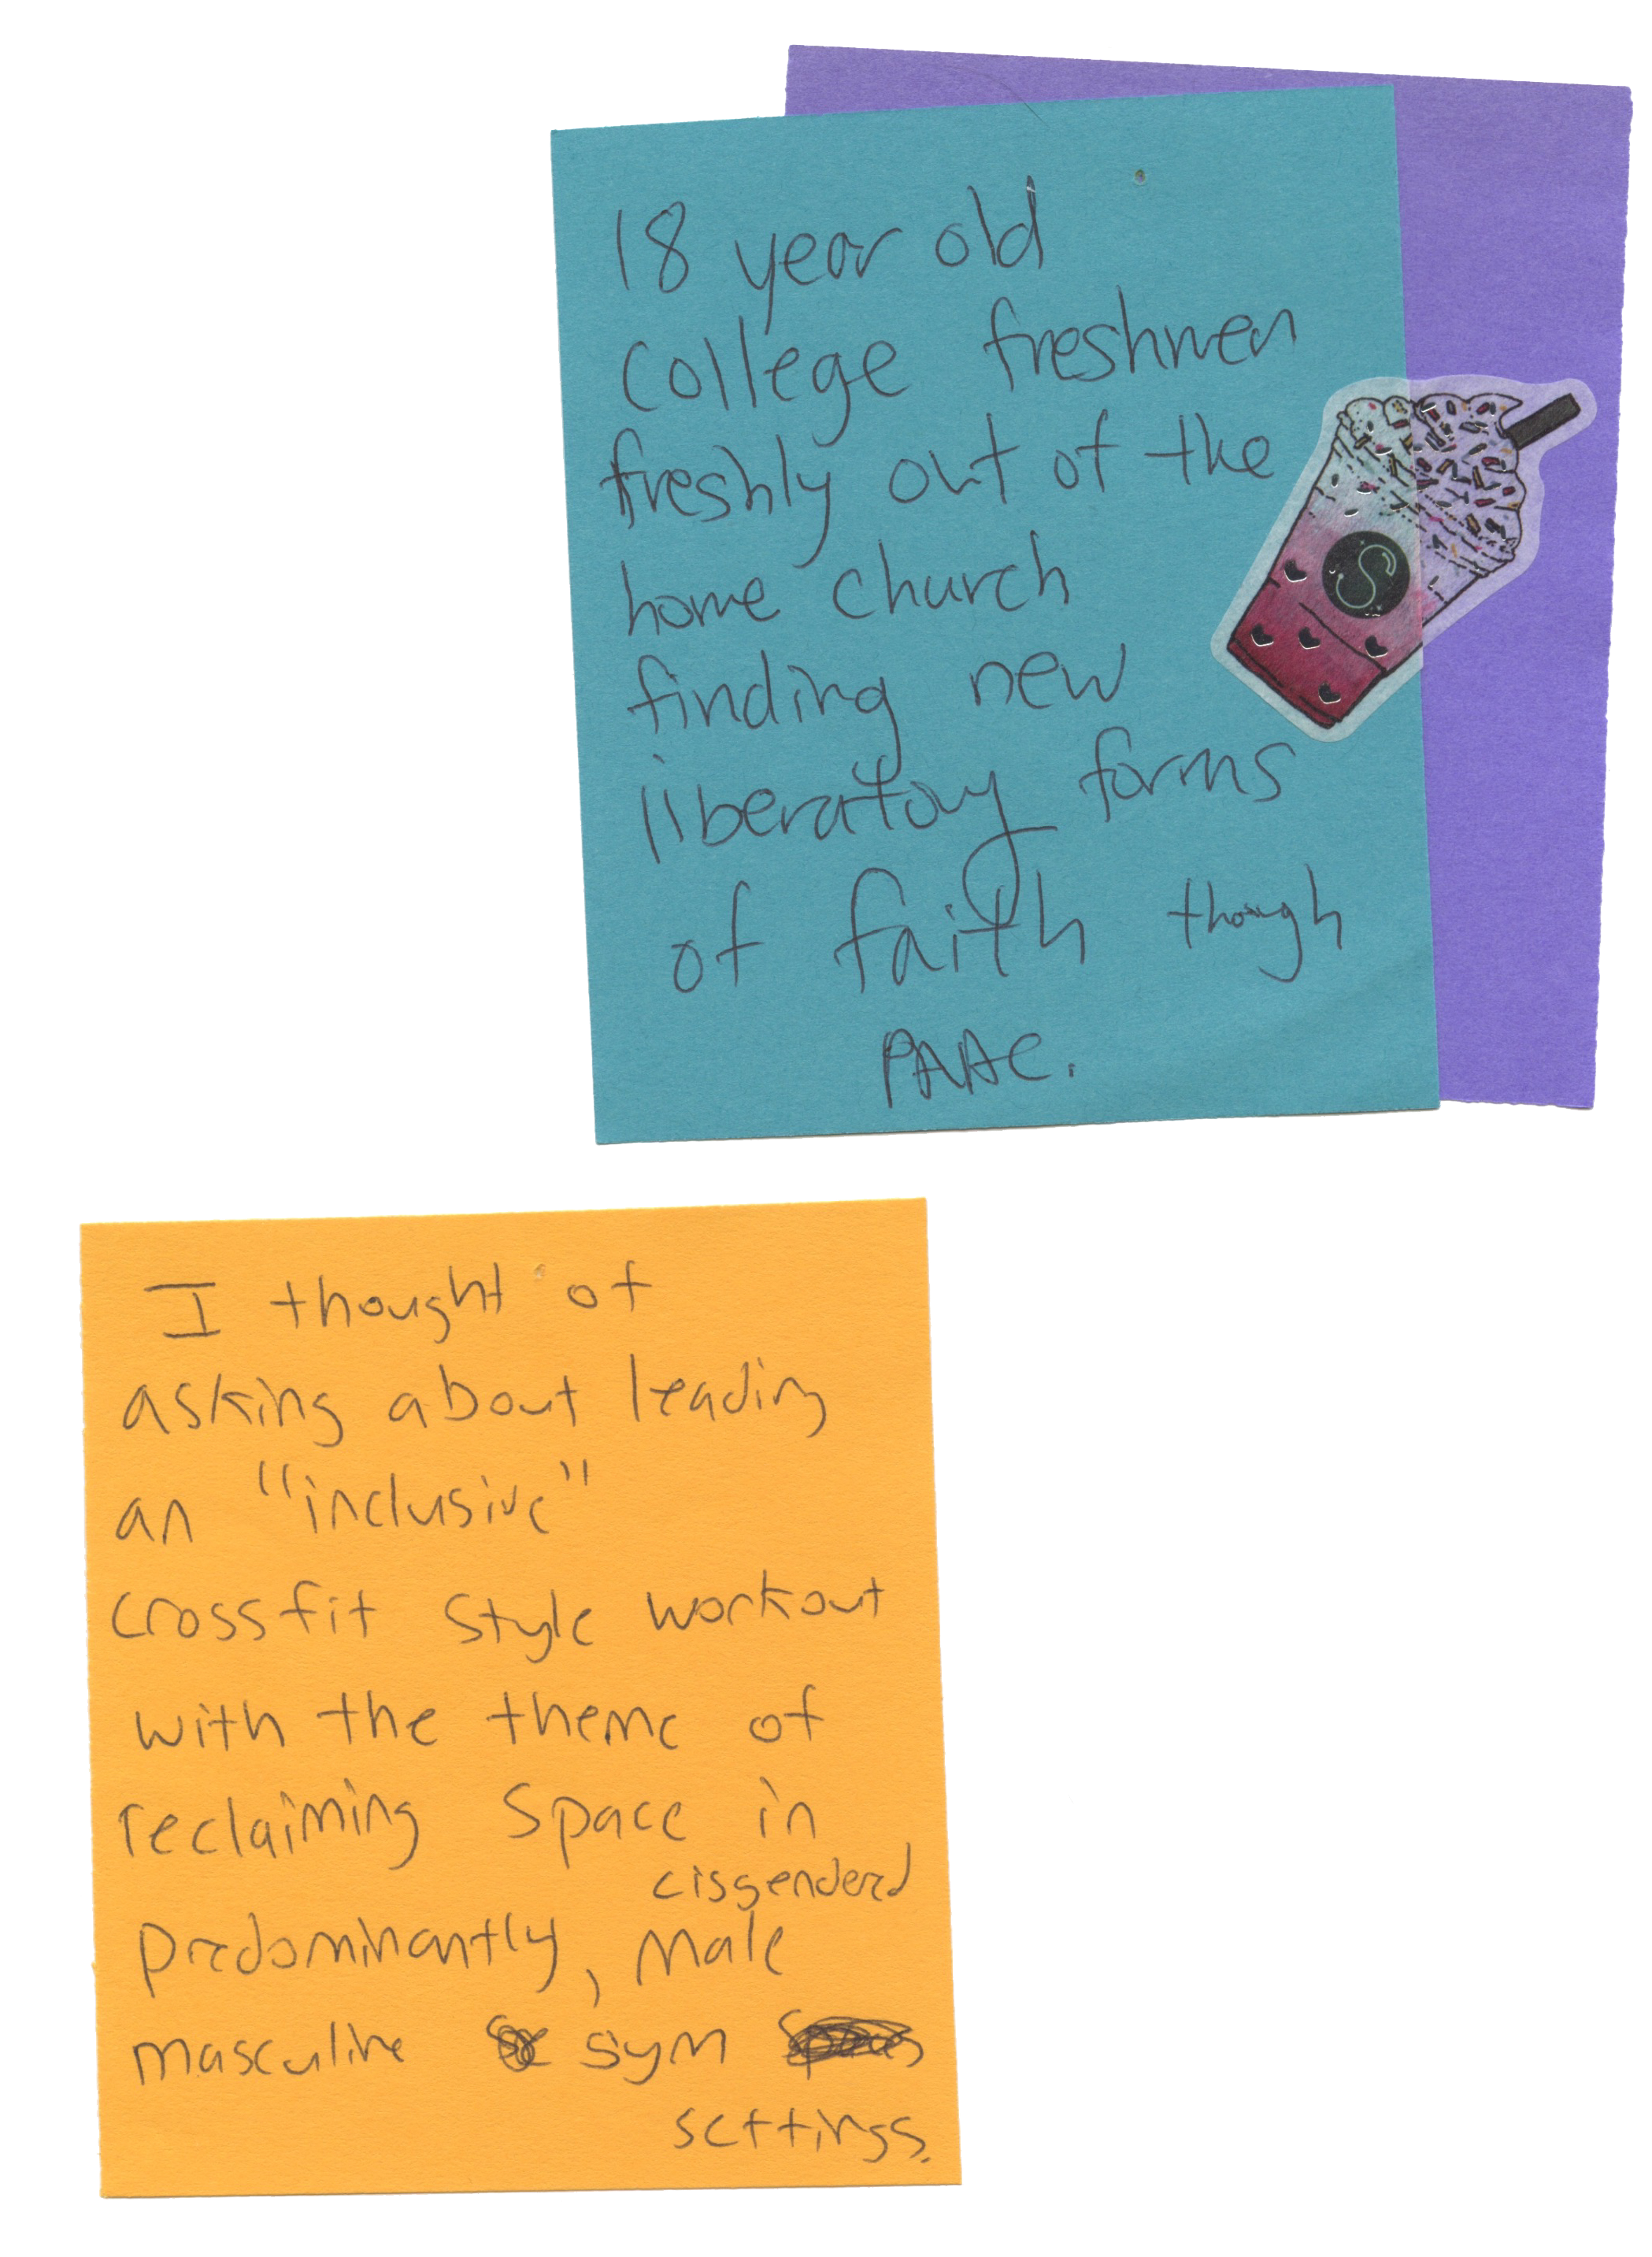 18 year old
college freshmen
freshly out of the
home church
finding new
liberatory forms
of faith though
PAAC.
S
I thought of
asking about leading
an "inclusive"
crossfit style workout
with the theme of
reclaiming space in
cisgenderd
predominantly, male
masculine gym
settings.